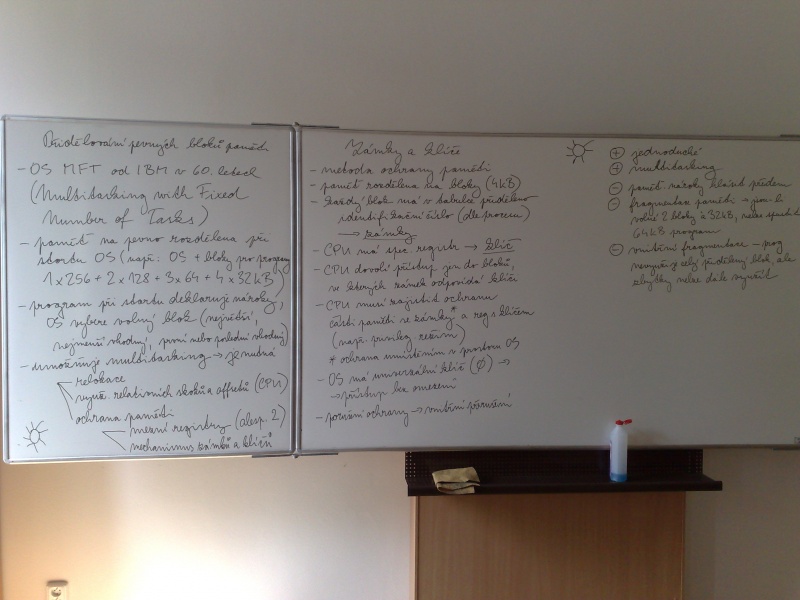 Přidělování pevných bloků paměti
- OS MFT od IBM v 60. letech
(Multitasking with Fixed
Number of Tasks)
- paměť na pevno rozdělena při
startu OS (např: OS + bloky pro programy
1x256 + 2x128 + 3x64 + 4x32kB)
- program při startu deklaruje nároky,
OS vybere volný blok (největší,
nejméně vhodný, první nebo poslední vhodný)
- umožňuje multitasking → je nutná
relokace
využ. relativních skoků a offsetů (CPU)
ochrana paměti
mezní registry (alesp. 2)
mechanismus zámků a klíčů
Zámky a klíče
- metoda ochrany paměti
- paměť rozdělena na bloky (4kB)
- každý blok má v tabulce přiděleno
identifikační číslo (dle procesu)
→ zámky
- CPU má spec registr → klíč
- CPU dovolí přístup jen do bloků,
ve kterých zámek odpovídá klíči
- CPU musí zajistit ochranu
části paměti se zámky* a reg s klíčem
(např privileg režim)
* ochrana umístěním v prostoru OS
- OS má univerzální klíč (Ø) →
→ přístup bez omezení
- porušení ochrany → vnitřní přerušení
+ jednoduché
+ multitasking
- paměť. nároky hlásit předem
- fragmentace paměti - jsou-li
volné 2 bloky à 32kB, nelze spustit
64kB program
- vnitřní fragmentace - prog
nevyužije celý přidělený blok, ale
zbytky nelze dále využít